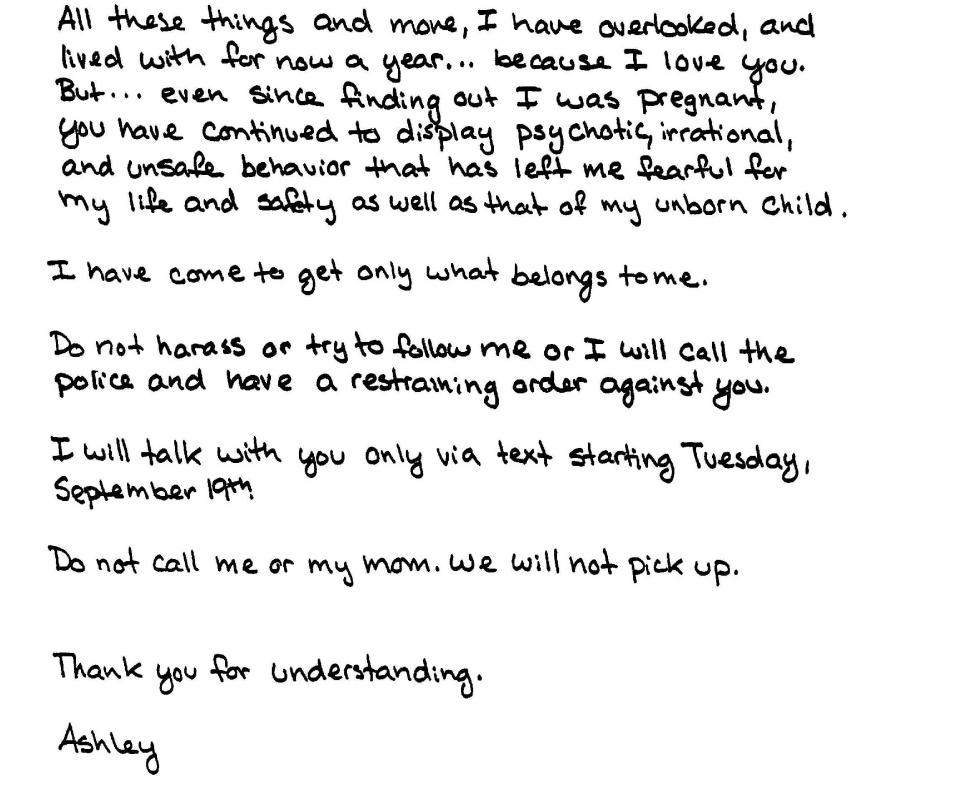 All these things and more, I have overlooked, and
lived with for now a year... because I love you.
But... even since finding out I was pregnant,
you have continued to display psychotic, irrational,
and unsafe behavior that has left me fearful for
my life and safety as well as that of my unborn child.
I have come to get only what belongs to me.
Do not harass or try to follow me or I will call the
police and have a restraining order against you.
I will talk with you only via text starting Tuesday,
September 19th.
Do not call me or my mom. We will not pick up.
Thank you for understanding.
Ashley